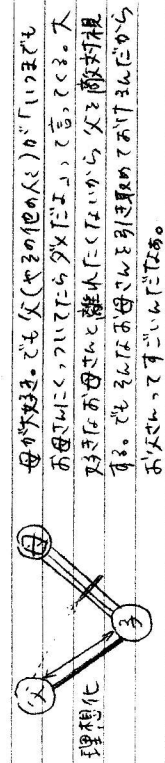 母が大好き。でも父(やその他の人)が「いつまでも
お母さんにくっついてたらダメだよ」って言ってくる。大
好きなお母さんと離れたくないから父を敵対視
する。でもそんなお母さんを引き取めておけるんだから
お父さんってすごいんだなあ。
母
父
子
理想化